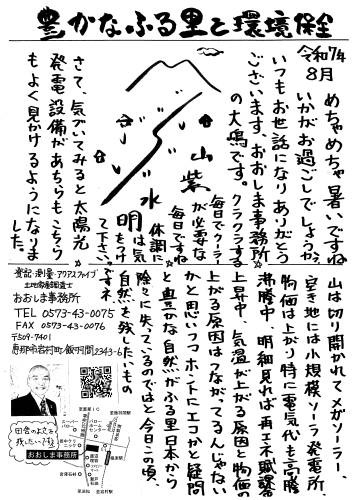 豊かなふる里と環境保全
令和7年
8月
めちゃめちゃ暑いですね
いかがお過ごしでしょうか。
いつもお世話になりありがとう
ございます、おおしま事務所
の大嶋です。クラクラする
毎日でクーラー
が必要な
毎日ですね
体調に
は気
をつけ
て下さ
いですネ。
山紫
水
明
さて、気づいてみると太陽光
発電設備があちらもこちら
もよく見かけるようになりま
した。
山は切り開かれてメガソーラー、
空き地には小規模ソーラ発電所、
物価は上がり特に電気代も高騰
沸騰中、明細見れば再エネ賦課金
上昇中、気温が上がる原因と物価の
上がる原因はつながってるんじゃない
かと思いつつホントにエコかと疑問
と豊かな自然がふる里日本から
除々に失っているのではと今日この頃、
自然を残したいもの
登記・測量・アクアスファイブ
土地家屋調査士
おおしま事務所
TEL 0573-43-0075
FAX 0573-43-0076
〒509-7401
恵那市岩村町飯羽間2343-6
田舎の文化を
残したい行政
おおしま事務所
至恵那IC
至瑞浪
至岩村